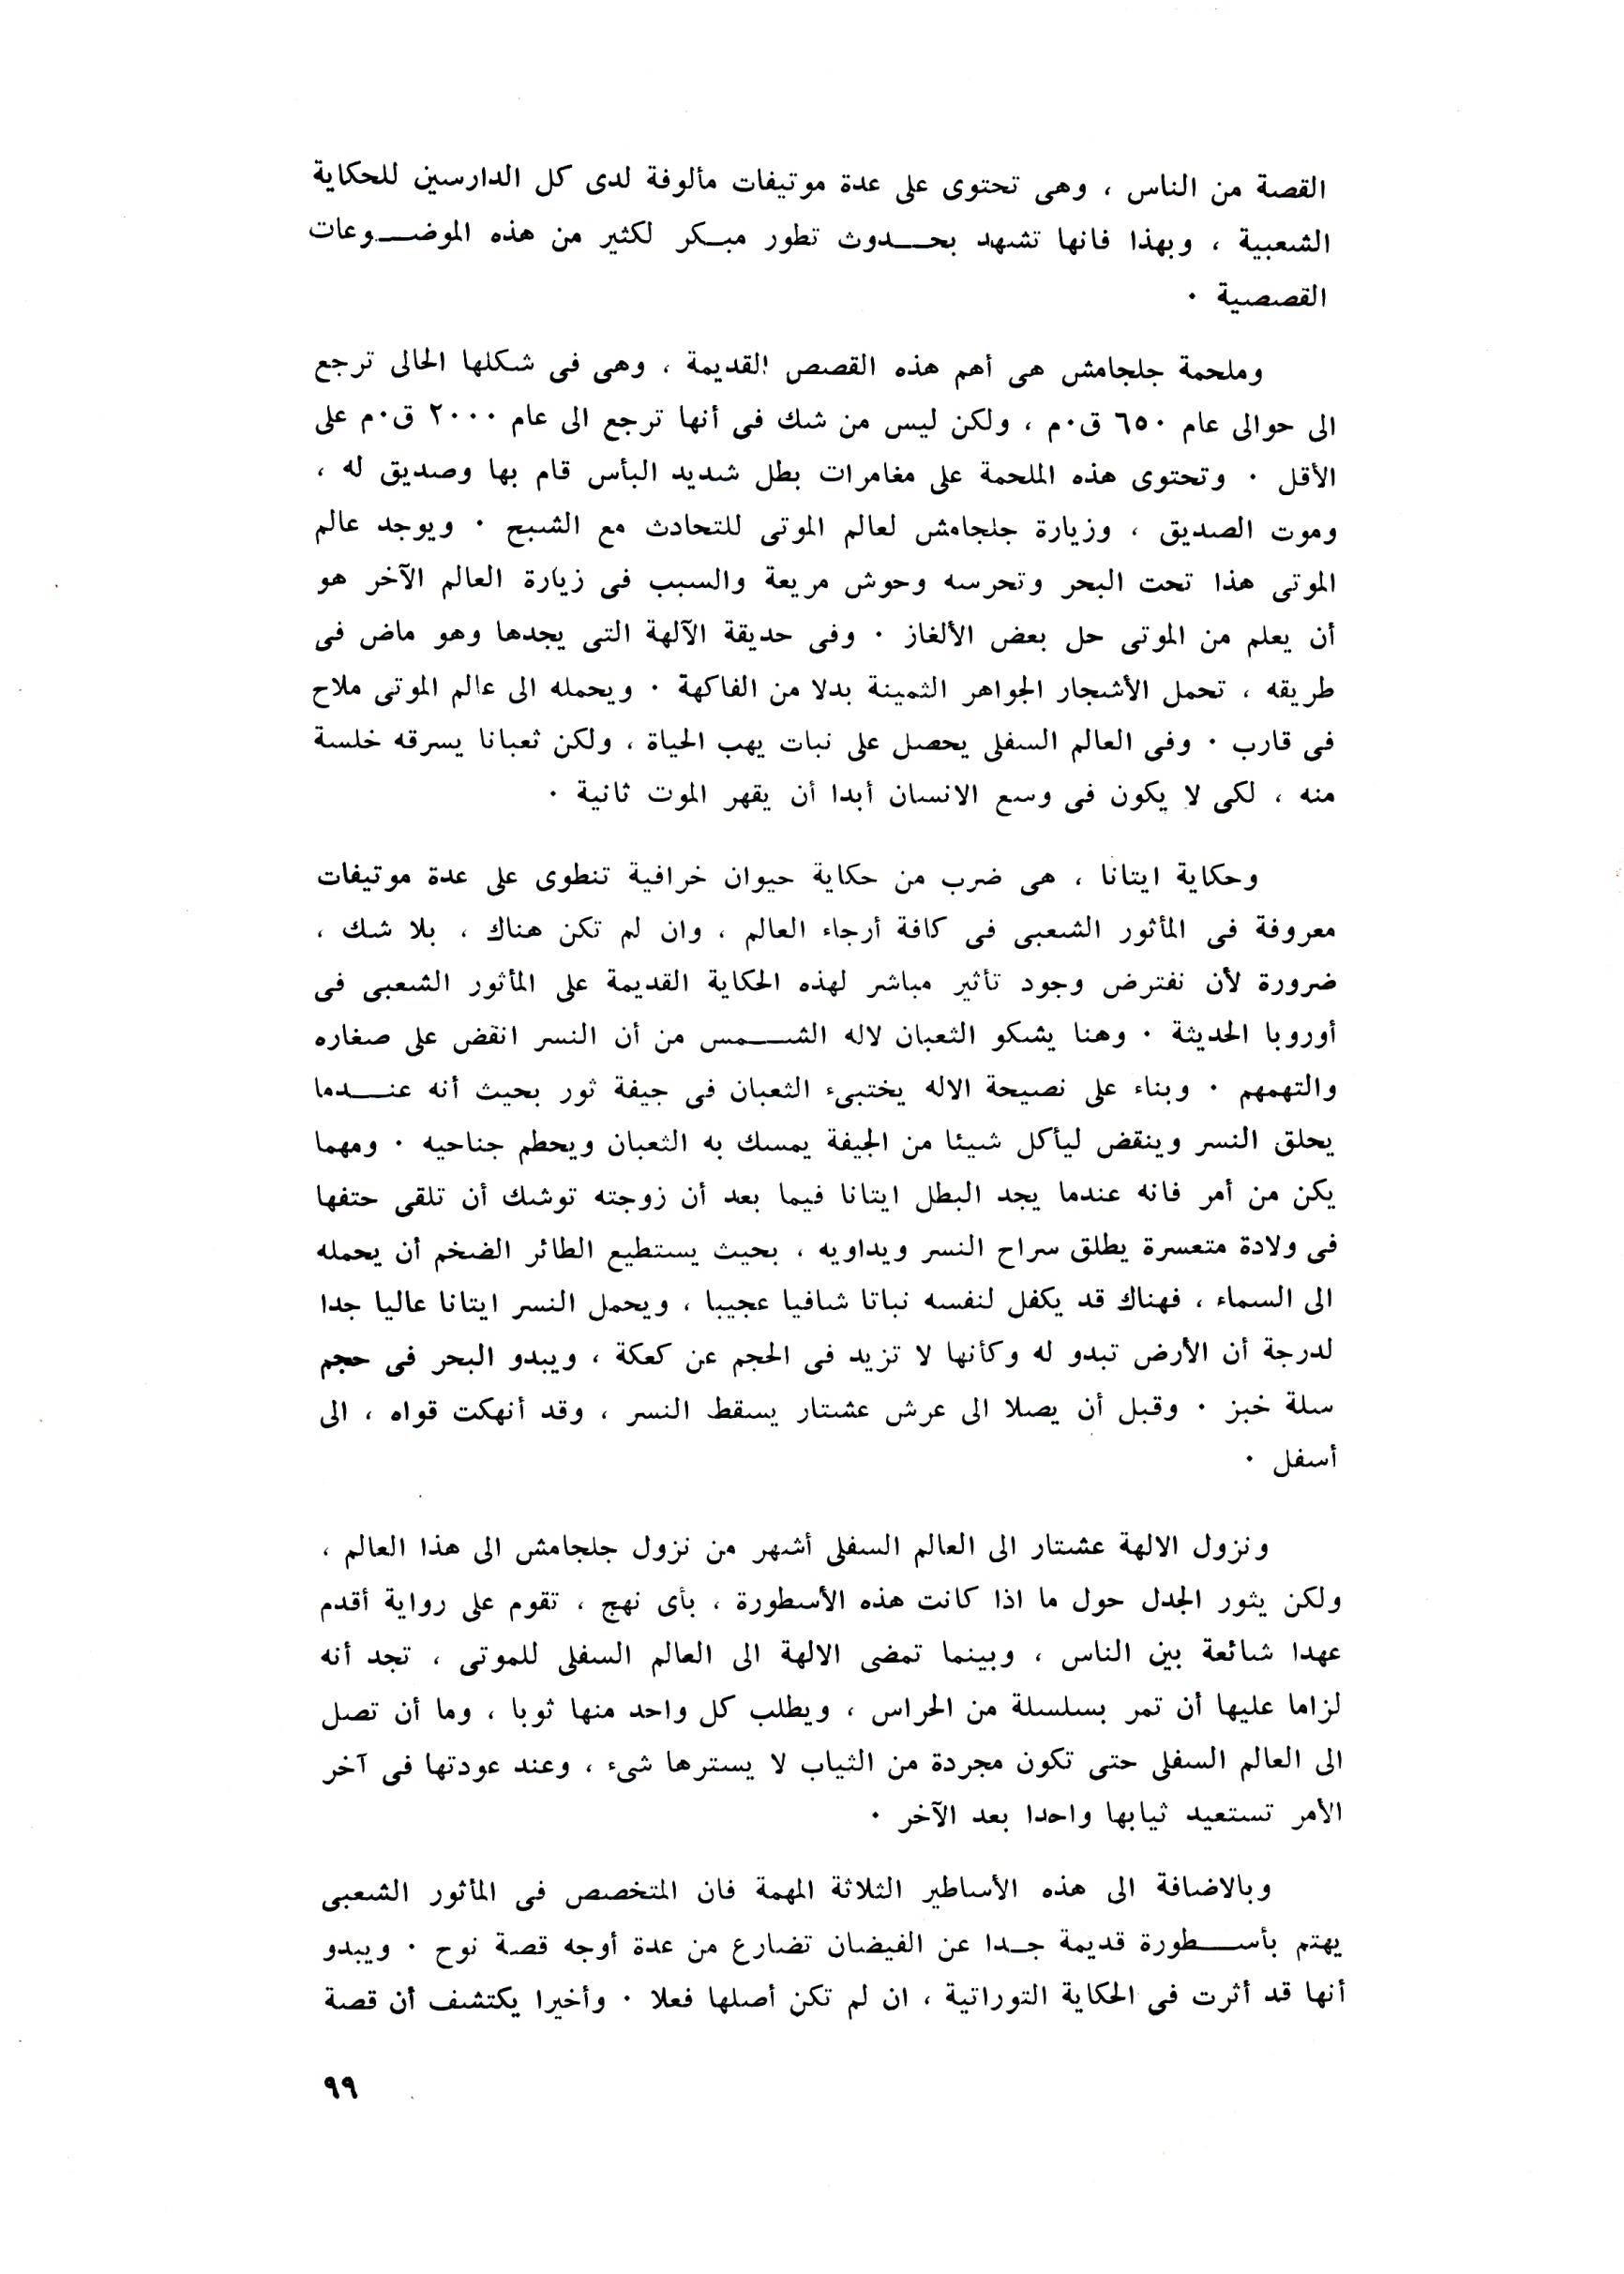 القصة من الناس ، وهى تحتوى على عدة موتيفات مألوفة لدى كل الدارسين للحكاية
الشعبية ، وبهذا فانها تشهد بحـــدوث تطور مبـكر لكثير من هذه الموضــوعات
القصصية ٠
وملحمة جلجامش هى أهم هذه القصص القديمة ، وهى فى شكلها الحالى ترجع
الى حوالى عام ٦٥٠ ق٠م ، ولكن ليس من شك فى أنها ترجع الى عام ٢٠٠٠ ق٠م على
الأقل ٠ وتحتوى هذه الملحمة على مغامرات بطل شديد البأس قام بها وصديق له ،
وموت الصديق ، وزيارة جلجامش لعالم الموتى للتحادث مع الشبح ٠ ويوجد عالم
الموتى هذا تحت البحر وتحرسه وحوش مريعة والسبب فى زيارة العالم الآخر هو
أن يعلم من الموتى حل بعض الألغاز ٠ وفى حديقة الآلهة التى يجدها وهو ماض فى
طريقه ، تحمل الأشجار الجواهر الثمينة بدلا من الفاكهة ٠ ويحمله الى عالم الموتى ملاح
فى قارب ٠ وفى العالم السفلى يحصل على نبات يهب الحياة ، ولكن ثعبانا يسرقه خلسة
منه ، لكى لا يكون فى وسع الانسان أبدا أن يقهر الموت ثانية ٠
وحكاية ايتانا ، هى ضرب من حكاية حيوان خرافية تنطوى على عدة موتيفات
معروفة فى المأثور الشعبى فى كافة أرجاء العالم ، وان لم تكن هناك ، بلا شك ،
ضرورة لأن نفترض وجود تأثير مباشر لهذه الحكاية القديمة على المأثور الشعبى فى
أوروبا الحديثة ٠ وهنا يشكو الثعبان لاله الشـــمس من أن النسر انقض على صغاره
والتهمهم ٠ وبناء على نصيحة الاله يختبىء الثعبان فى جيفة ثور بحيث أنه عنـــدما
يحلق النسر وينقض ليأكل شيئا من الجيفة يمسك به الثعبان ويحطم جناحيه ٠ ومهما
يكن من أمر فانه عندما يجد البطل ايتانا فيما بعد أن زوجته توشك أن تلقى حتفها
فى ولادة متعسرة يطلق سراح النسر ويداويه ، بحيث يستطيع الطائر الضخم أن يحمله
الى السماء ، فهناك قد يكفل لنفسه نباتا شافيا عجيبا ، ويحمل النسر ايتانا عاليا جدا
لدرجة أن الأرض تبدو له وكأنها لا تزيد فى الحجم عن كعكة ، ويبدو البحر فى حجم
سلة خبز ٠ وقبل أن يصلا الى عرش عشتار يسقط النسر ، وقد أنهكت قواه ، الى
أسفل ٠
ونزول الالهة عشتار الى العالم السفلى أشهر من نزول جلجامش الى هذا العالم ،
ولكن يثور الجدل حول ما اذا كانت هذه الأسطورة ، بأى نهج ، تقوم على رواية أقدم
عهدا شائعة بين الناس ، وبينما تمضى الالهة الى العالم السفلى للموتى ، تجد أنه
لزاما عليها أن تمر بسلسلة من الحراس ، ويطلب كل واحد منها ثوبا ، وما أن تصل
الى العالم السفلى حتى تكون مجردة من الثياب لا يسترها شىء ، وعند عودتها فى آخر
الأمر تستعيد ثيابها واحدا بعد الآخر ٠
وبالاضافة الى هذه الأساطير الثلاثة المهمة فان المتخصص فى المأثور الشعبى
يهتم بأســطورة قديمة جـدا عن الفيضان تضارع من عدة أوجه قصة نوح ٠ ويبدو
أنها قد أثرت فى الحكاية التوراتية ، ان لم تكن أصلها فعلا ٠ وأخيرا يكتشف أن قصة
٩٩